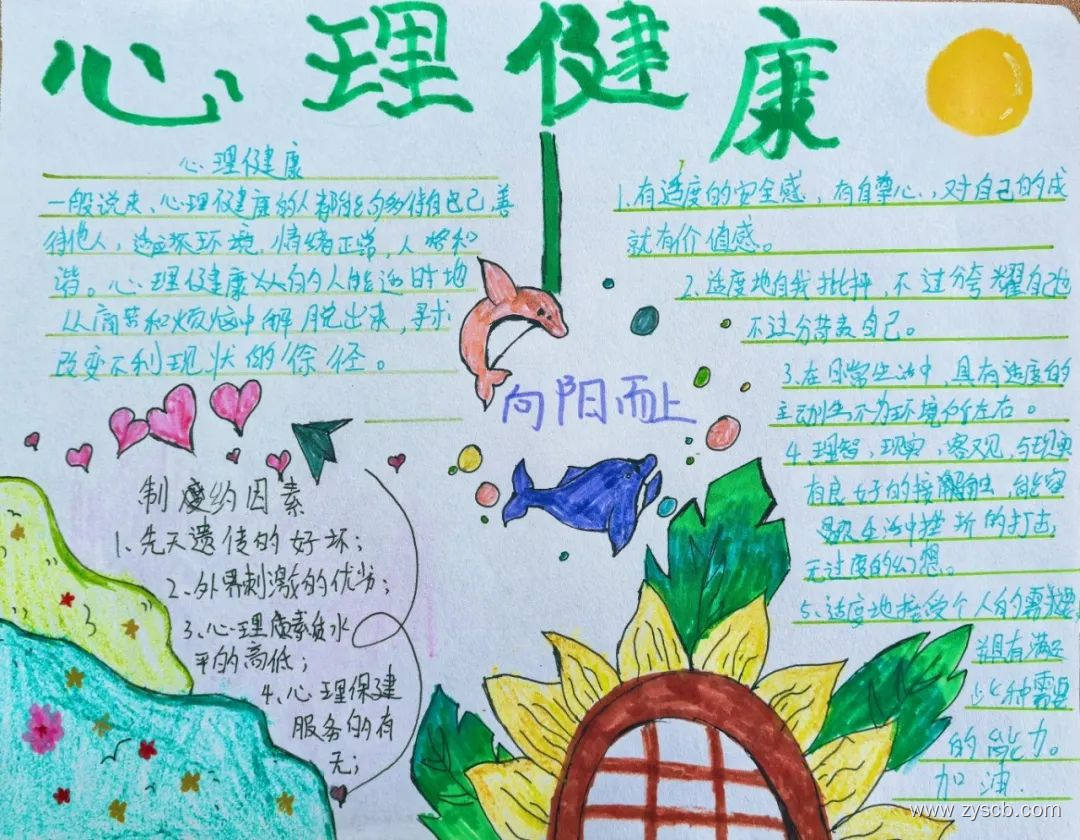 心理健康
心理健康
一般说来、心理健康的人都能够善待自己,善
待他人,适应环境,情绪正常,人格和
谐。心理健康的人能适时地
从痛苦和烦恼中解脱出来,寻求
改变不利现状的途径。
向阳而上
制度约因素
1、先天遗传的好坏;
2、外界刺激的优劣;
3、心理素质水
平的高低;
4、心理保建
服务的有
无;
1、有适度的安全感,有自尊心、对自己的成
就有价值感。
2、适度地自我批评,不过分夸耀自己也
不过分苛责自己。
3、在日常生活中,具有适度的
主动性不为环境所左右。
4、理智,现实,客观,与现实
有良好的接触,能容
忍生活中挫折的打击,
无过度的幻想。
5、适度地接受个人的需要,
并具有满足
此种需要
的能力。
加油.
www.zyscb.com